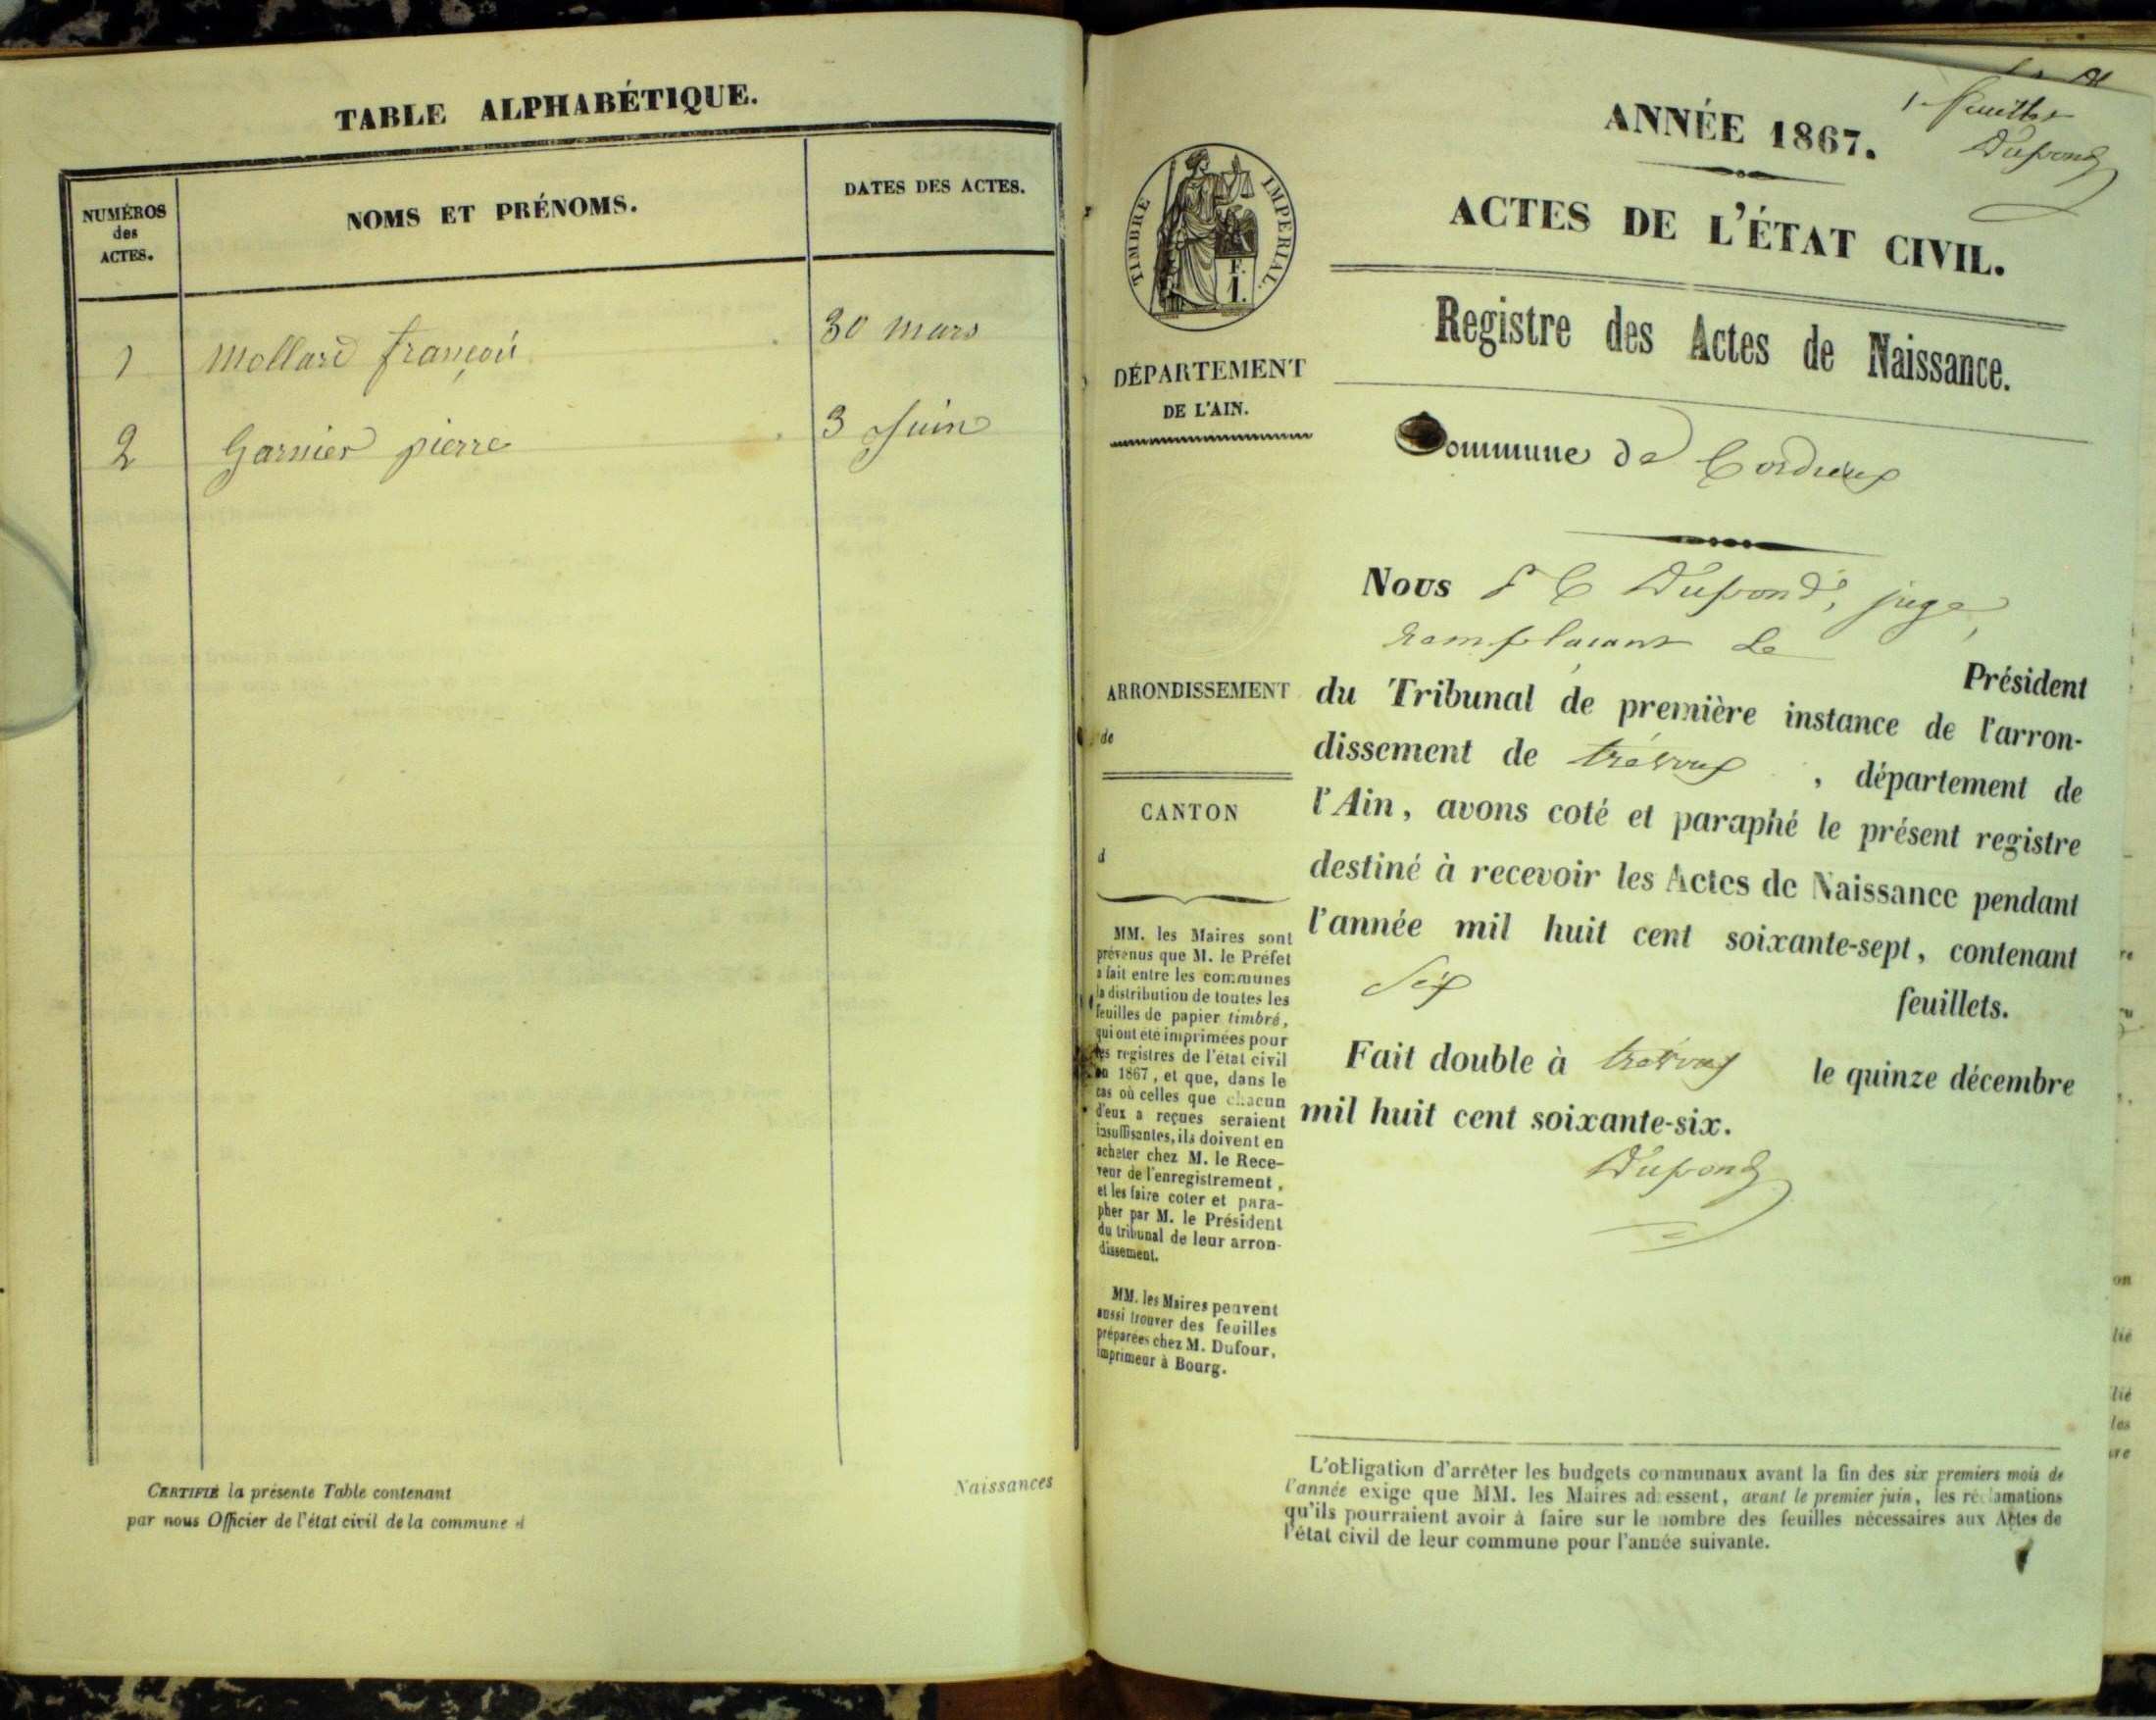 TABLE ALPHABÉTIQUE.
NUMÉROS
des
ACTES.
NOMS ET PRÉNOMS.
DATES DES ACTES.
1 Mollard françois 30 mars
2 Garnier pierre 3 Juin
CERTIFIÉ la présente Table contenant
par nous Officier de l'état civil de la commune d
Naissances
1er feuillet
Dupond
ANNÉE 1867.
ACTES DE L'ÉTAT CIVIL.
Registre des Actes de Naissance.
TIMBRE IMPERIAL.
F.
1.
DÉPARTEMENT
DE L'AIN.
Commune de Cordieux
ARRONDISSEMENT
de
CANTON
d
MM. les Maires sont
prévenus que M. le Préfet
a fait entre les communes
la distribution de toutes les
feuilles de papier timbré,
qui ont été imprimées pour
les registres de l'état civil
en 1867, et que, dans le
cas où celles que chacun
d'eux a reçues seraient
insuffisantes, ils doivent en
acheter chez M. le Rece-
veur de l'enregistrement,
et les faire coter et para-
pher par M. le Président
du tribunal de leur arron-
dissement.
MM. les Maires peuvent
aussi trouver des feuilles
préparées chez M. Dufour,
imprimeur à Bourg.
Nous Dupond, juge,
remplaçant le
Président
du Tribunal de première instance de l'arron-
dissement de trévoux, département de
l'Ain, avons coté et paraphé le présent registre
destiné à recevoir les Actes de Naissance pendant
l'année mil huit cent soixante-sept, contenant
Six feuillets.
Fait double à trévoux le quinze décembre
mil huit cent soixante-six.
Dupond
L'obligation d'arrêter les budgets communaux avant la fin des six premiers mois de
l'année exige que MM. les Maires adressent, avant le premier juin, les réclamations
qu'ils pourraient avoir à faire sur le nombre des feuilles nécessaires aux Actes de
l'état civil de leur commune pour l'année suivante.